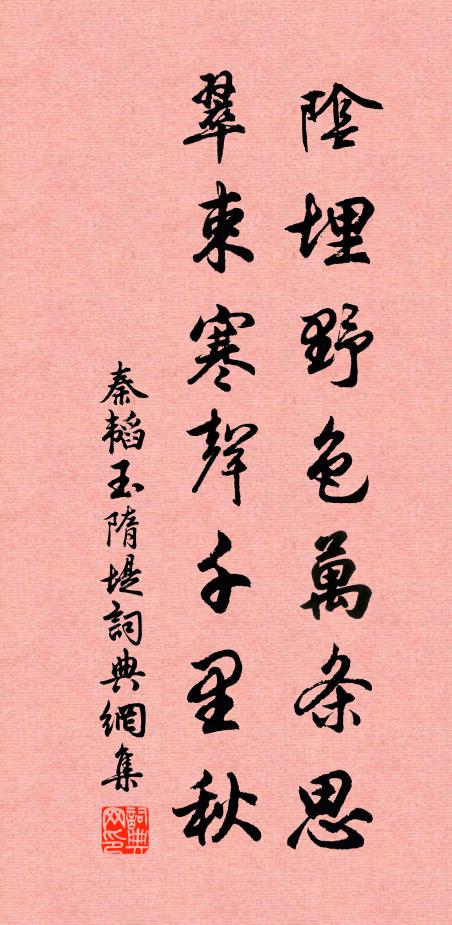 陰埋野色萬条思
翠束寒聲千里秋
秦韜玉隋堤詞典網集
詞典网印